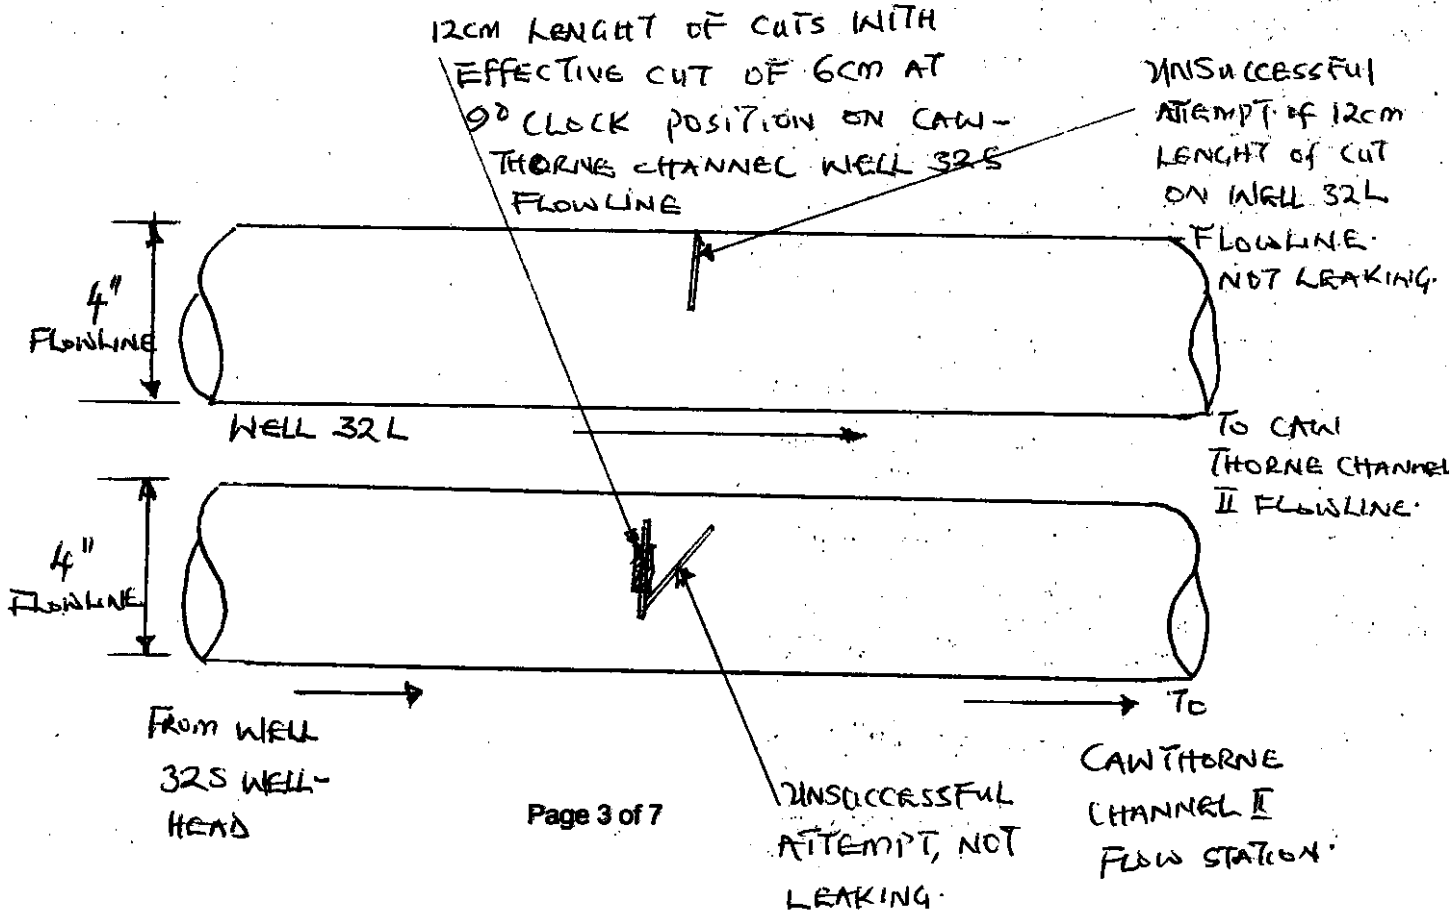 12CM LENGHT OF CUTS WITH
EFFECTIVE CUT OF 6CM AT
9º CLOCK POSITION ON CAW-
THORNE CHANNEL WELL 32S
FLOWLINE
UNSUCCESSFUL
ATTEMPT OF 12cm
LENGHT OF CUT
ON WELL 32L
FLOWLINE.
NOT LEAKING.
4"
FLOWLINE
WELL 32L
TO CAW
THORNE CHANNEL
II FLOWLINE.
4"
FLOWLINE
FROM WELL
32S WELL-
HEAD
Page 3 of 7
UNSUCCESSFUL
ATTEMPT, NOT
LEAKING.
TO
CAWTHORNE
CHANNEL II
FLOW STATION.